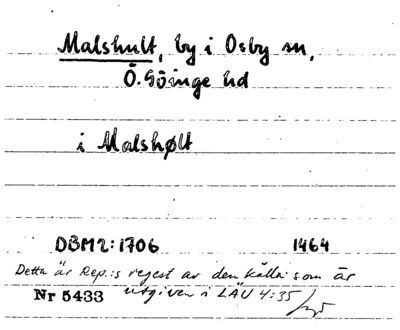 Malshult, by i Osby sn,
Ö. Göinge hd
i Malshølt
DBM2:1706 1464
Detta är Rep.:s regest av den källa som är
Nr 5433 utgiven i LÄU 4:35